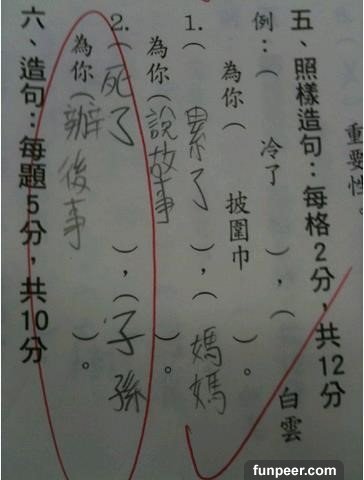 重要性
五、照樣造句：每格2分，共12分
例：（ 冷了 ），（ 白雲
為你（ 披圍巾 ）。
1.（ 累了 ），（ 媽媽
為你（說故事 ）。
2.（死了 ），（子孫
為你（辦後事 ）。
六、造句：每題5分，共10分
funpeer.com